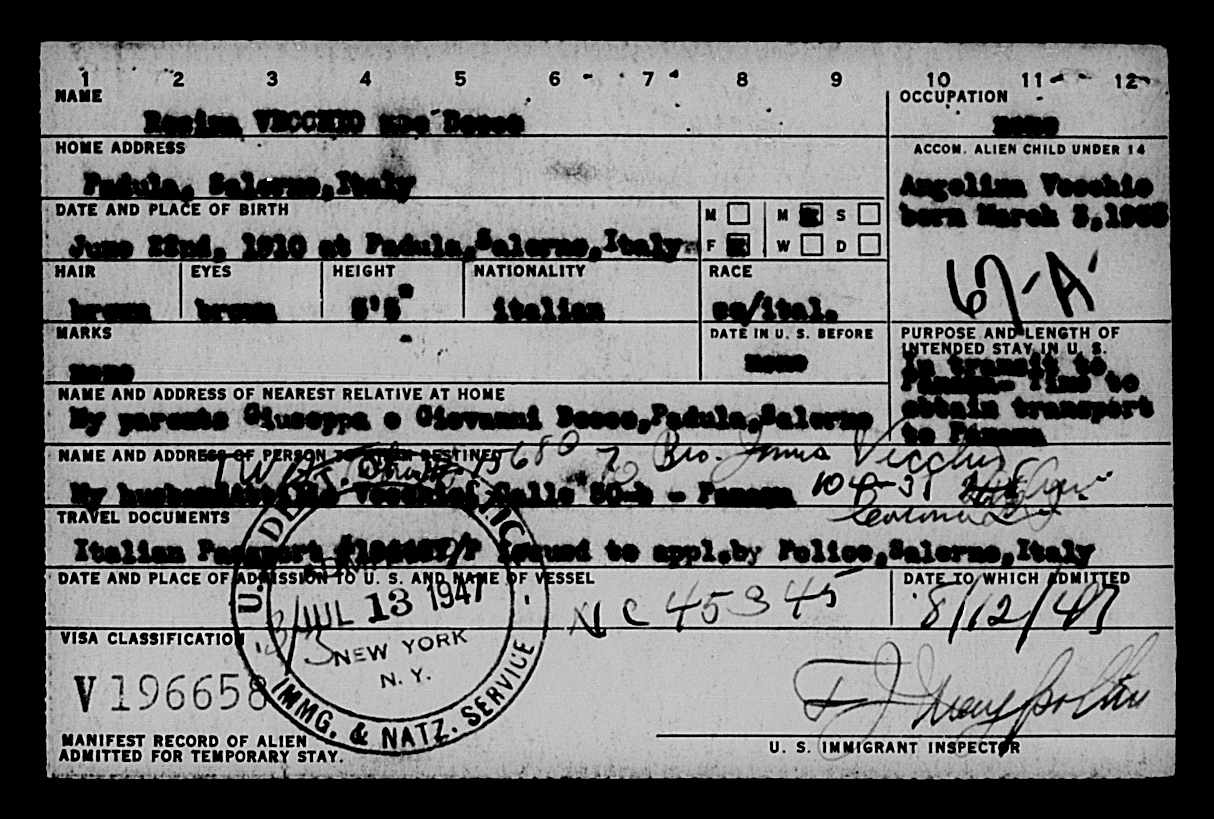 1 2 3 4 5 6 7 8 9 10 11 12
NAME
VECCHIO
OCCUPATION
none
HOME ADDRESS
Padula, Salerno, Italy
ACCOM. ALIEN CHILD UNDER 14
Angelina Vecchio
born March
DATE AND PLACE OF BIRTH
June 22nd, 1910 at Padula, Salerno, Italy
M M S
F W D
67-A
HAIR EYES HEIGHT NATIONALITY RACE
brown brown 5'5" italian so/ital.
MARKS
none
DATE IN U. S. BEFORE
none
PURPOSE AND LENGTH OF
INTENDED STAY IN U. S.
In transit to
Panama- Time to
obtain transport
to Panama
NAME AND ADDRESS OF NEAREST RELATIVE AT HOME
My parents Giuseppa e Giovanni Padula, Salerno
NAME AND ADDRESS OF PERSON TO WHOM DESTINED
Bro. James Vecchio
My husband Vecchio, Calle - Panama
104-31
Corona
TRAVEL DOCUMENTS
Italian Passport issued to appl. by Police, Salerno, Italy
DATE AND PLACE OF ADMISSION TO U. S. AND NAME OF VESSEL
NC 45345
DATE TO WHICH ADMITTED
8/12/47
U. S.
JUL 13 1947
NEW YORK
N. Y.
IMMG. & NATZ. SERVICE
VISA CLASSIFICATION
V196658
MANIFEST RECORD OF ALIEN
ADMITTED FOR TEMPORARY STAY.
U. S. IMMIGRANT INSPECTOR